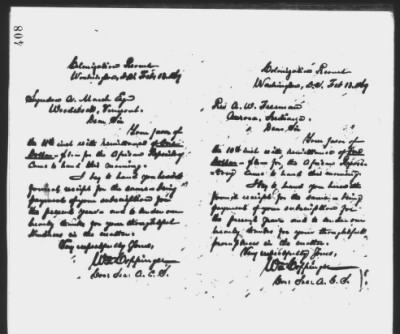 408
Colonization Rooms
Washington, D.C. Feb 13. /89
Lyndon A. Marsh Esq
Woodstock, Vermont.
Dear Sir
Your favor of
the 10th inst with remittance of
Dollar - $1.00 for the African Repository
Came to hand this morning.
I beg to hand you herewith
formal receipt for the same - being
payment of your subscription for
the present year - and to tender our
hearty thanks for your thoughtful
kindness in the matter.
Very respectfully Yours,
Wm Coppinger
Sec: A. C. S.
Colonization Rooms
Washington, D.C. Feb 13. /89
Rev A. W. Freeman
Aurora, Indiana.
Dear Sir
Your favor of
the 10th inst with remittance of
Dollar - $1.00 for the African Reposi-
tory came to hand this morning.
I beg to hand you herewith
formal receipt for the same - being
payment of your subscription for
the present year and to tender our
hearty thanks for your thoughtful
promptness in the matter.
Very respectfully Yours,
Wm Coppinger
Sec: A. C. S.